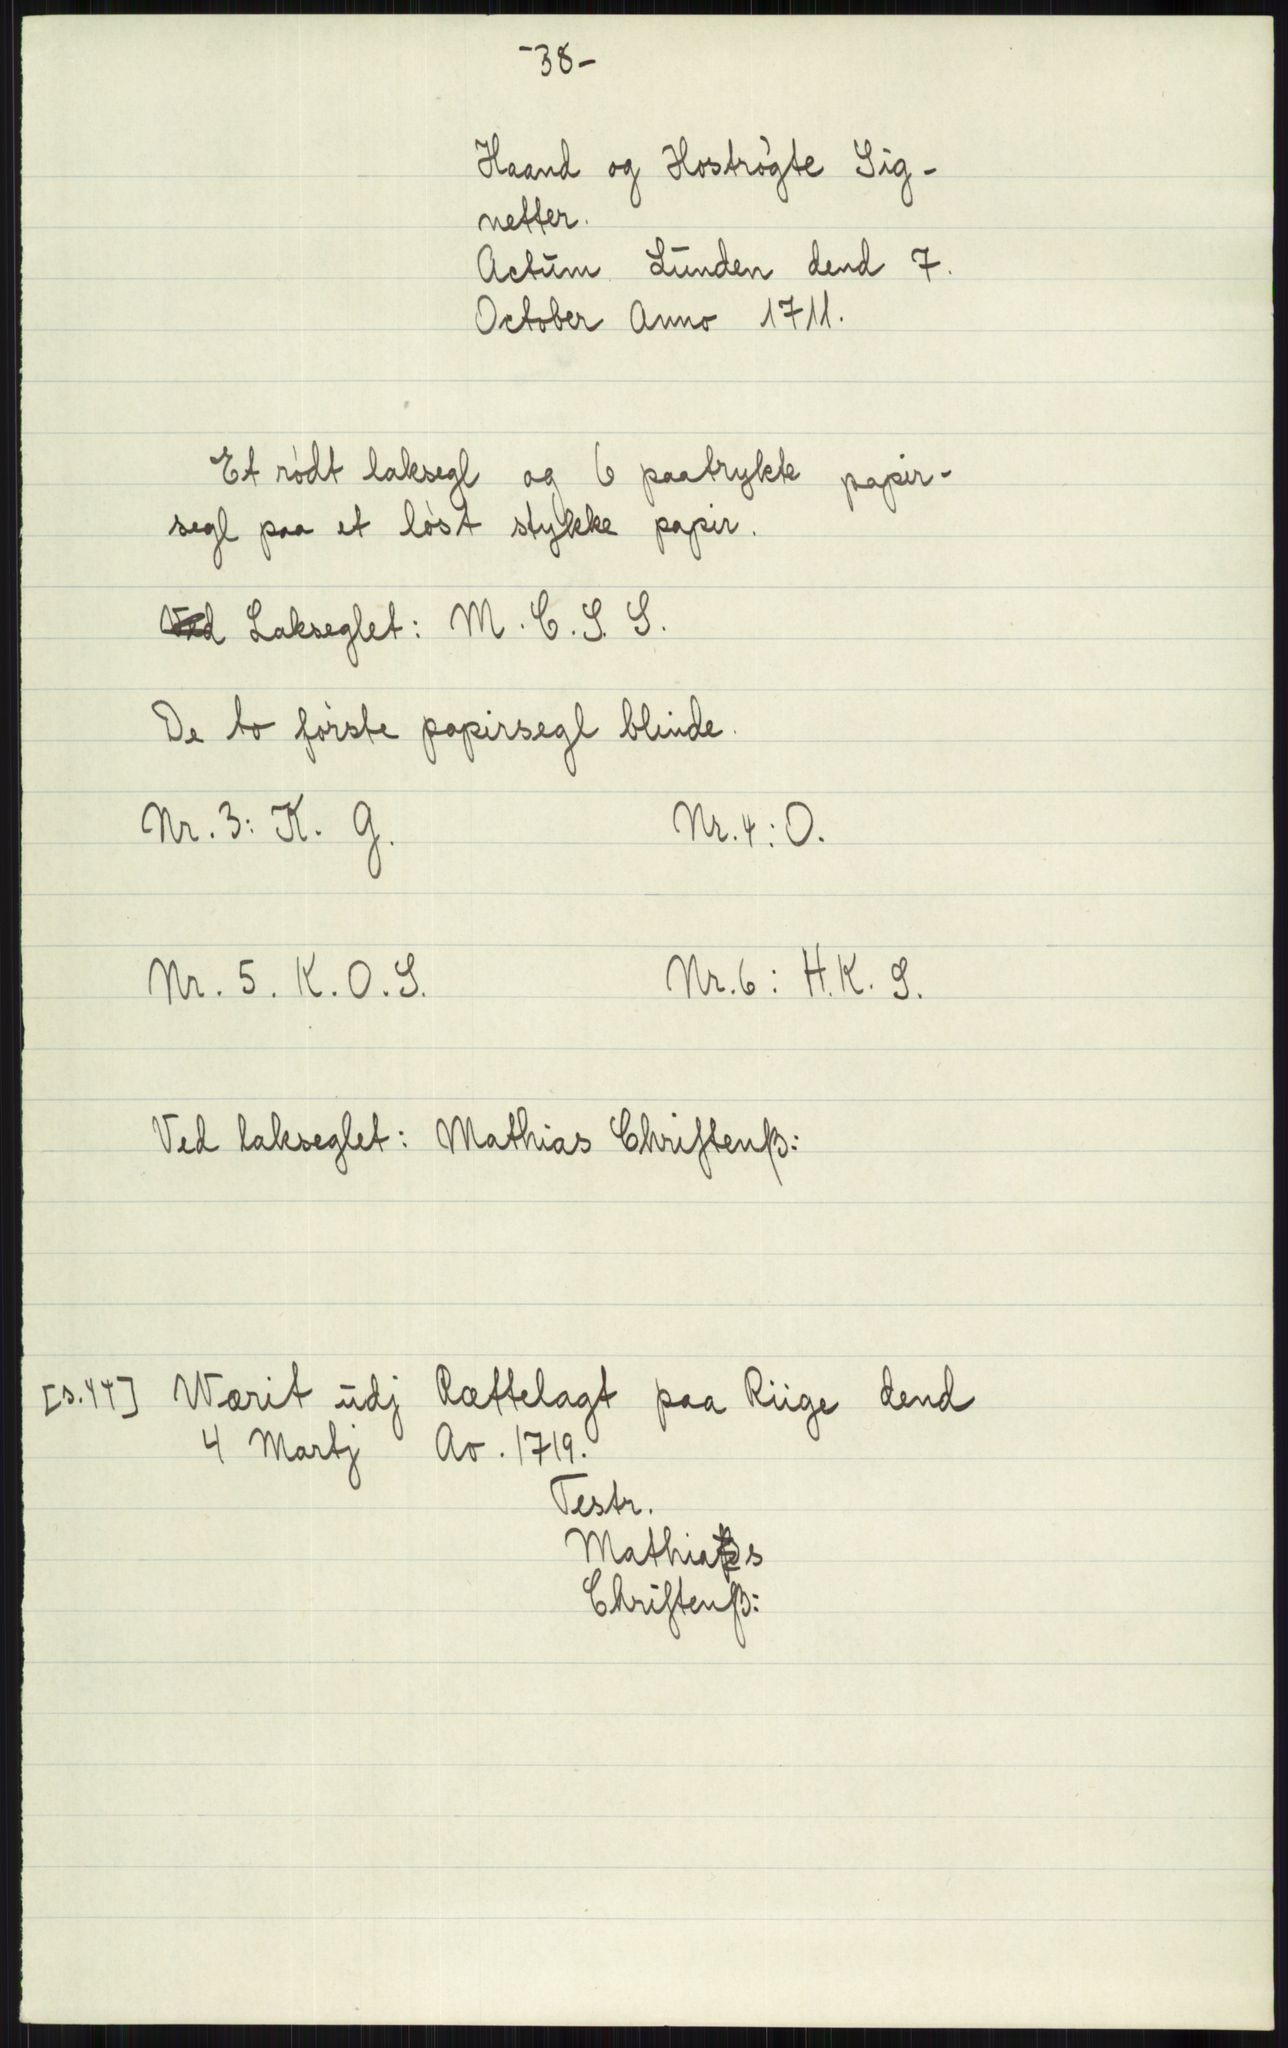 -38-
Haand og Hoströgte Sig-
netter.
Actūm Lūnden dend 7.
October Anno 1711.
Et rödt laksegl og 6 paatrykte papir-
segl paa et löst stykke papir.
Lakseglet: M. C. S. S.
De to förste papirsegl blinde.
Nr. 3: K. G. Nr. 4: O.
Nr. 5. K. O. S. Nr. 6: H. K. S.
Ved lakseglet: Mathias Chriſtenſß:
[s. 44] Wærit ūdj Rættelagt paa Riige dend
4 Martj Ao. 1719.
Testr.
Mathias
Chriſtenſß: